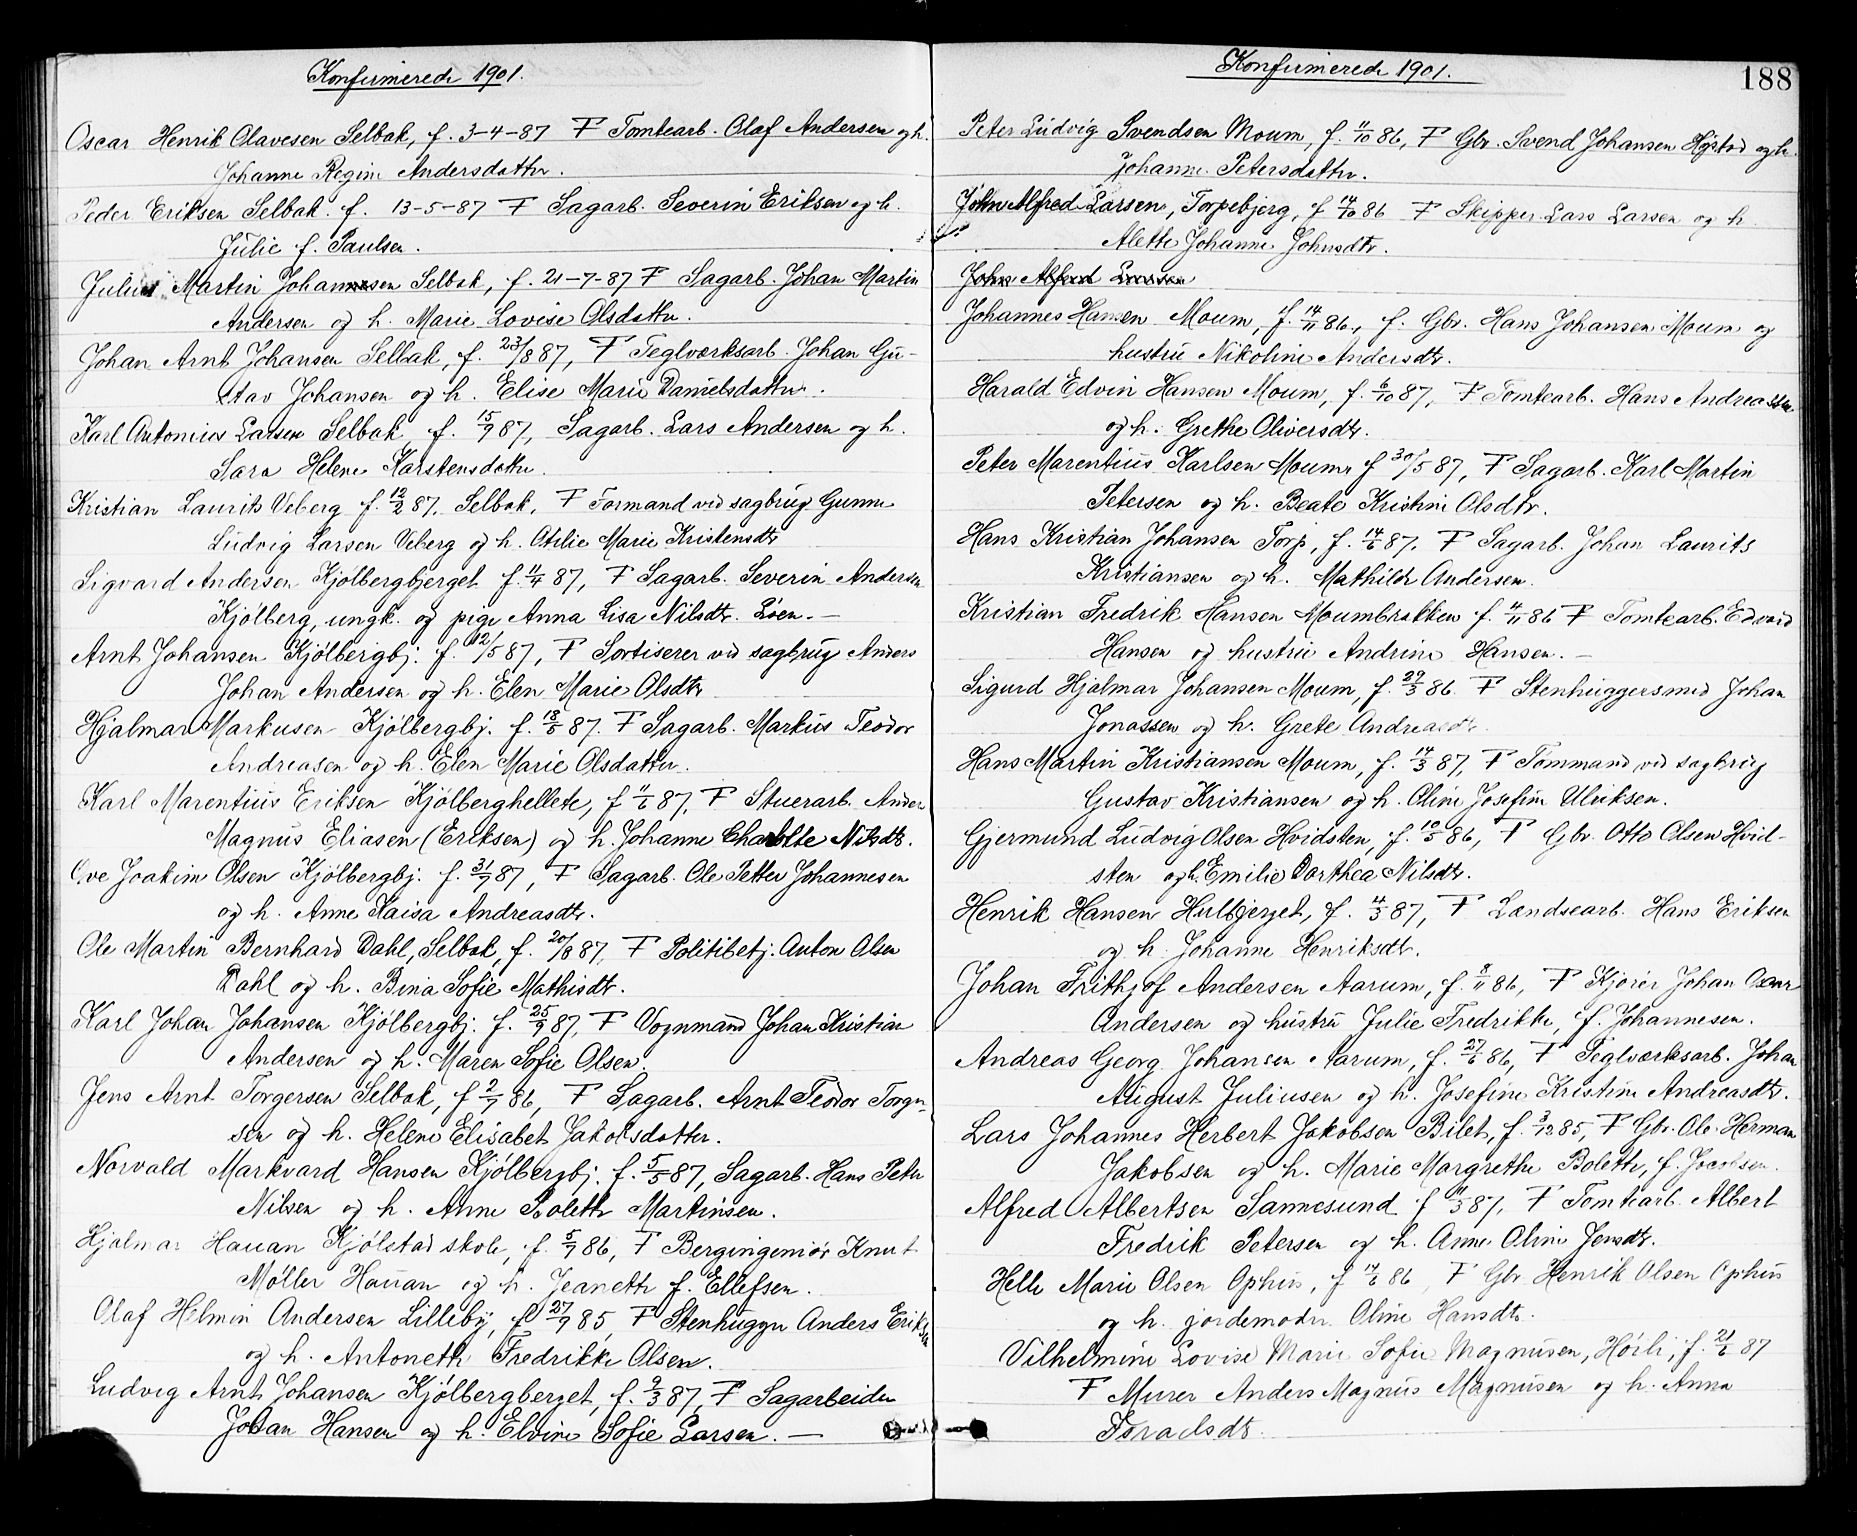 Konfirmerede 1901.
Oscar Henrik Olavesen Selbak, f. 3-4-87 F Tomtearb. Olaf Andersen og h.
Johanne Regine Andersdatter.
Peder Eriksen Selbak. f. 13-5-87 F Sagarb. Severin Eriksen og h.
Julie f. Paulsen.
Julius Martin Johannesen Selbak, f. 21-7-87 F Sagarb. Johan Martin
Andersen og h. Marie Lovise Olsdatter.
Johan Arnt Johansen Selbak, f. 23/8 87, F Teglværksarb. Johan Gu-
stav Johansen og h. Elise Marie Danielsdatter.
Karl Antonius Larsen Selbak, f. 15/9 87, Sagarb. Lars Andersen og h.
Sara Helene Karstensdatter.
Kristian Laurits Veberg f. 12/2 87. Selbak, F Formand ved sagbrug Gunner
Ludvig Larsen Veberg og h. Otilie Marie Kristensdtr
Sigvard Andersen Kjølbergbjerget f. 11/4 87, F Sagarb. Severin Andersen
Kjølberg, ungk. og pige Anna Lisa Nilsdtr. Løen. —
Arnt Johansen Kjølbergbj. f. 12/5 87, F Sortiserer ved sagbrug Anders
Johan Andersen og h. Elen Marie Olsdtr
Hjalmar Markusen Kjølbergbj. f. 18/5 87. F Sagarb. Markus Teodor
Andreasen og h. Elen Marie Olsdatter.
Karl Marentius Eriksen Kjølberghellete, f 11/6 87, F Stuerarb. Anders
Magnus Eliasen (Eriksen) og h. Johanne Charlotte Nilsdtr.
Ove Joakim Olsen Kjølbergbj. f. 31/7 87, F Sagarb. Ole Petter Johannesen
og h. Anne Kaisa Andreasdtr.
Ole Martin Bernhard Dahl, Selbak, f. 20/8 87, F Politibetj. Anton Olsen
Dahl og h. Bina Sofie Mathisdtr.
Karl Johan Johansen Kjølbergbj. f. 25/9 87, F Vognmand Johan Kristian
Andersen og h. Maren Sofie Olsen.
Jens Arnt Torgersen Selbak, f 2/7 86, F Sagarb. Arnt Teodor Torger-
sen og h. Helene Elisabet Jakobsdatter.
Norvald Markvard Hansen Kjølbergbj. f. 5/5 87, Sagarb. Hans Peter
Nilsen og h. Anne Bolette Martinsen.
Hjalmar Hauan Kjølstad skole, f. 5/7 86, F Bergingeniør Knut
Møller Hauan og h. Jeanette f. Ellefsen.
Olaf Helmin Andersen Lilleby, f 27/9 85, F Stenhugger Anders Eriksen
og h. Antonette Fredrikke Olsen.
Ludvig Arnt Johansen Kjølbergberget, f. 9/3 87, F Sagarbeider
Johan Hansen og h. Elvine Sofie Larsen. —
Konfirmerede 1901.
188
Peter Ludvig Svendsen Moum, f. 11/10 86, F Gbr. Svend Johansen Høistad og h.
Johanne Petersdatter.
John Alfred Larsen, Torpebjerg, f 14/10 86 F Skipper Lars Larsen og h
Alette Johanne Johnsdtr.
John Alfred Larsen
Johannes Hansen Moum, f. 14/11 86, f. Gbr. Hans Johansen Moum og
hustru Nikoline Andersdtr.
Harald Edvin Hansen Moum, f. 6/10 87, F Tomtearb. Hans Andreassen
og h. Grethe Oliversdtr.
Peter Marentius Karlsen Moum f 30/5 87, F Sagarb. Karl Martin
Petersen og h. Beate Kristine Olsdtr.
Hans Kristian Johansen Torp, f. 14/6 87. F Sagarb. Johan Laurits
Kristiansen og h. Mathilde Andersen.
Kristian Fredrik Hansen Moumbrakken f. 4/11 86 F Tomtearb. Edvard
Hansen og hustru Andrine Hansen. —
Sigurd Hjalmar Johansen Moum, f. 29/3 86. F Stenhuggersmed Johan
Jonassen og h. Grete Andreasdtr.
Hans Martin Kristiansen Moum, f. 14/3 87, F Tømmand ved sagbrug
Gustav Kristiansen og h. Oline Josefine Ulriksen.
Gjermund Ludvig Olsen Hvidsten, f. 10/5 86, F Gbr. Otto Olsen Hvid-
sten og h. Emilie Dorthea Nilsdtr.
Henrik Hansen Hulbjerget, f. 4/3 87, F Landsearb. Hans Eriksen
og h. Johanne Henriksdtr.
Johan Frithjof Andersen Aarum, f. 8/11 86, F Kjører Johan Oscar
Andersen og hustru Julie Fredrikke, f. Johannesen.
Andreas Georg Johansen Aarum, f. 27/6 86, F Teglværksarb. Johan
August Juliusen og h. Josefine Kristine Andreasdtr.
Lars Johannes Herbert Jakobsen Bilet, f. 3/12 85, F Gbr. Ole Herman
Jakobsen og h. Marie Margrethe Bolette, f. Jacobsen.
Alfred Albertsen Sannesund f 11/3 87, F Tomtearb. Albert
Fredrik Petersen og h. Anne Oline Jensdtr.
Helle Marie Olsen Ophus, f 14/6 86, F Gbr Henrik Olsen Ophus
og h. jordemoder Oline Hansdtr.
Vilhelmine Lovise Marie Sofie Magnusen, Hørli, f. 21/6 87
F Murer Anders Magnus Magnusen og h. Anna
Israelsdtr.